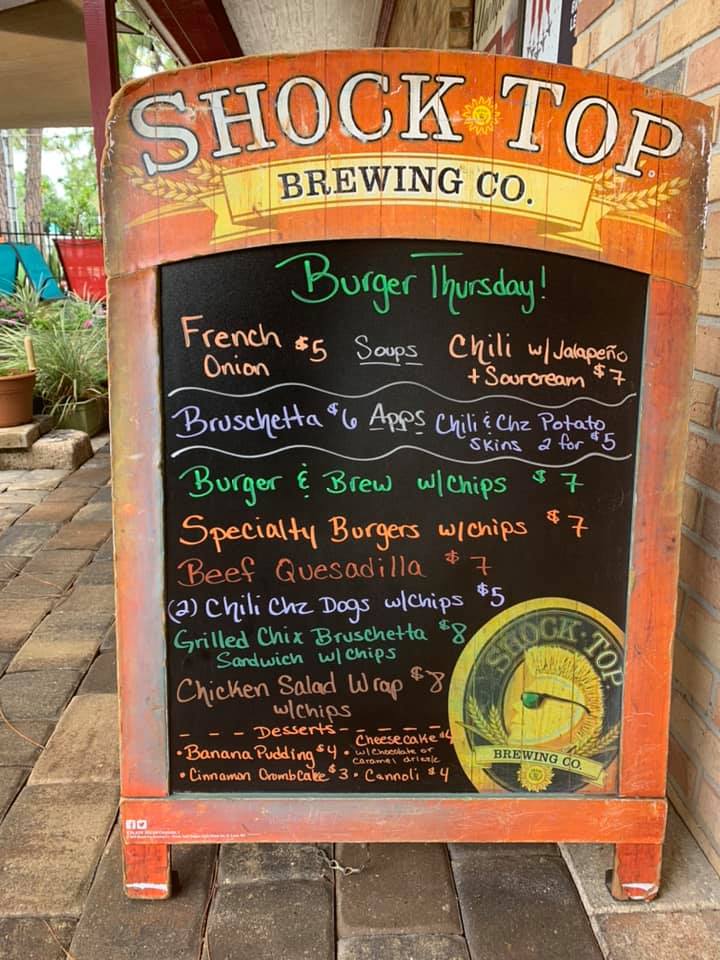 SHOCK TOP
BREWING CO.
Burger Thursday!
French Onion $5 Soups Chili w/ Jalapeño + Sourcream $7
Bruschetta $6 Apps Chili & Chz Potato Skins 2 for $5
Burger & Brew w/chips $7
Specialty Burgers w/chips $7
Beef Quesadilla $7
(2) Chili Chz Dogs w/chips $5
Grilled Chix Bruschetta $8
Sandwich w/ chips
Chicken Salad Wrap $8
w/chips
- - - Desserts - - - -
• Banana Pudding $4 • Cheesecake $4
w/ Chocolate or
Caramel drizzle
• Cinnamon Crumb Cake $3 • Cannoli $4
SHOCK TOP
BREWING CO.